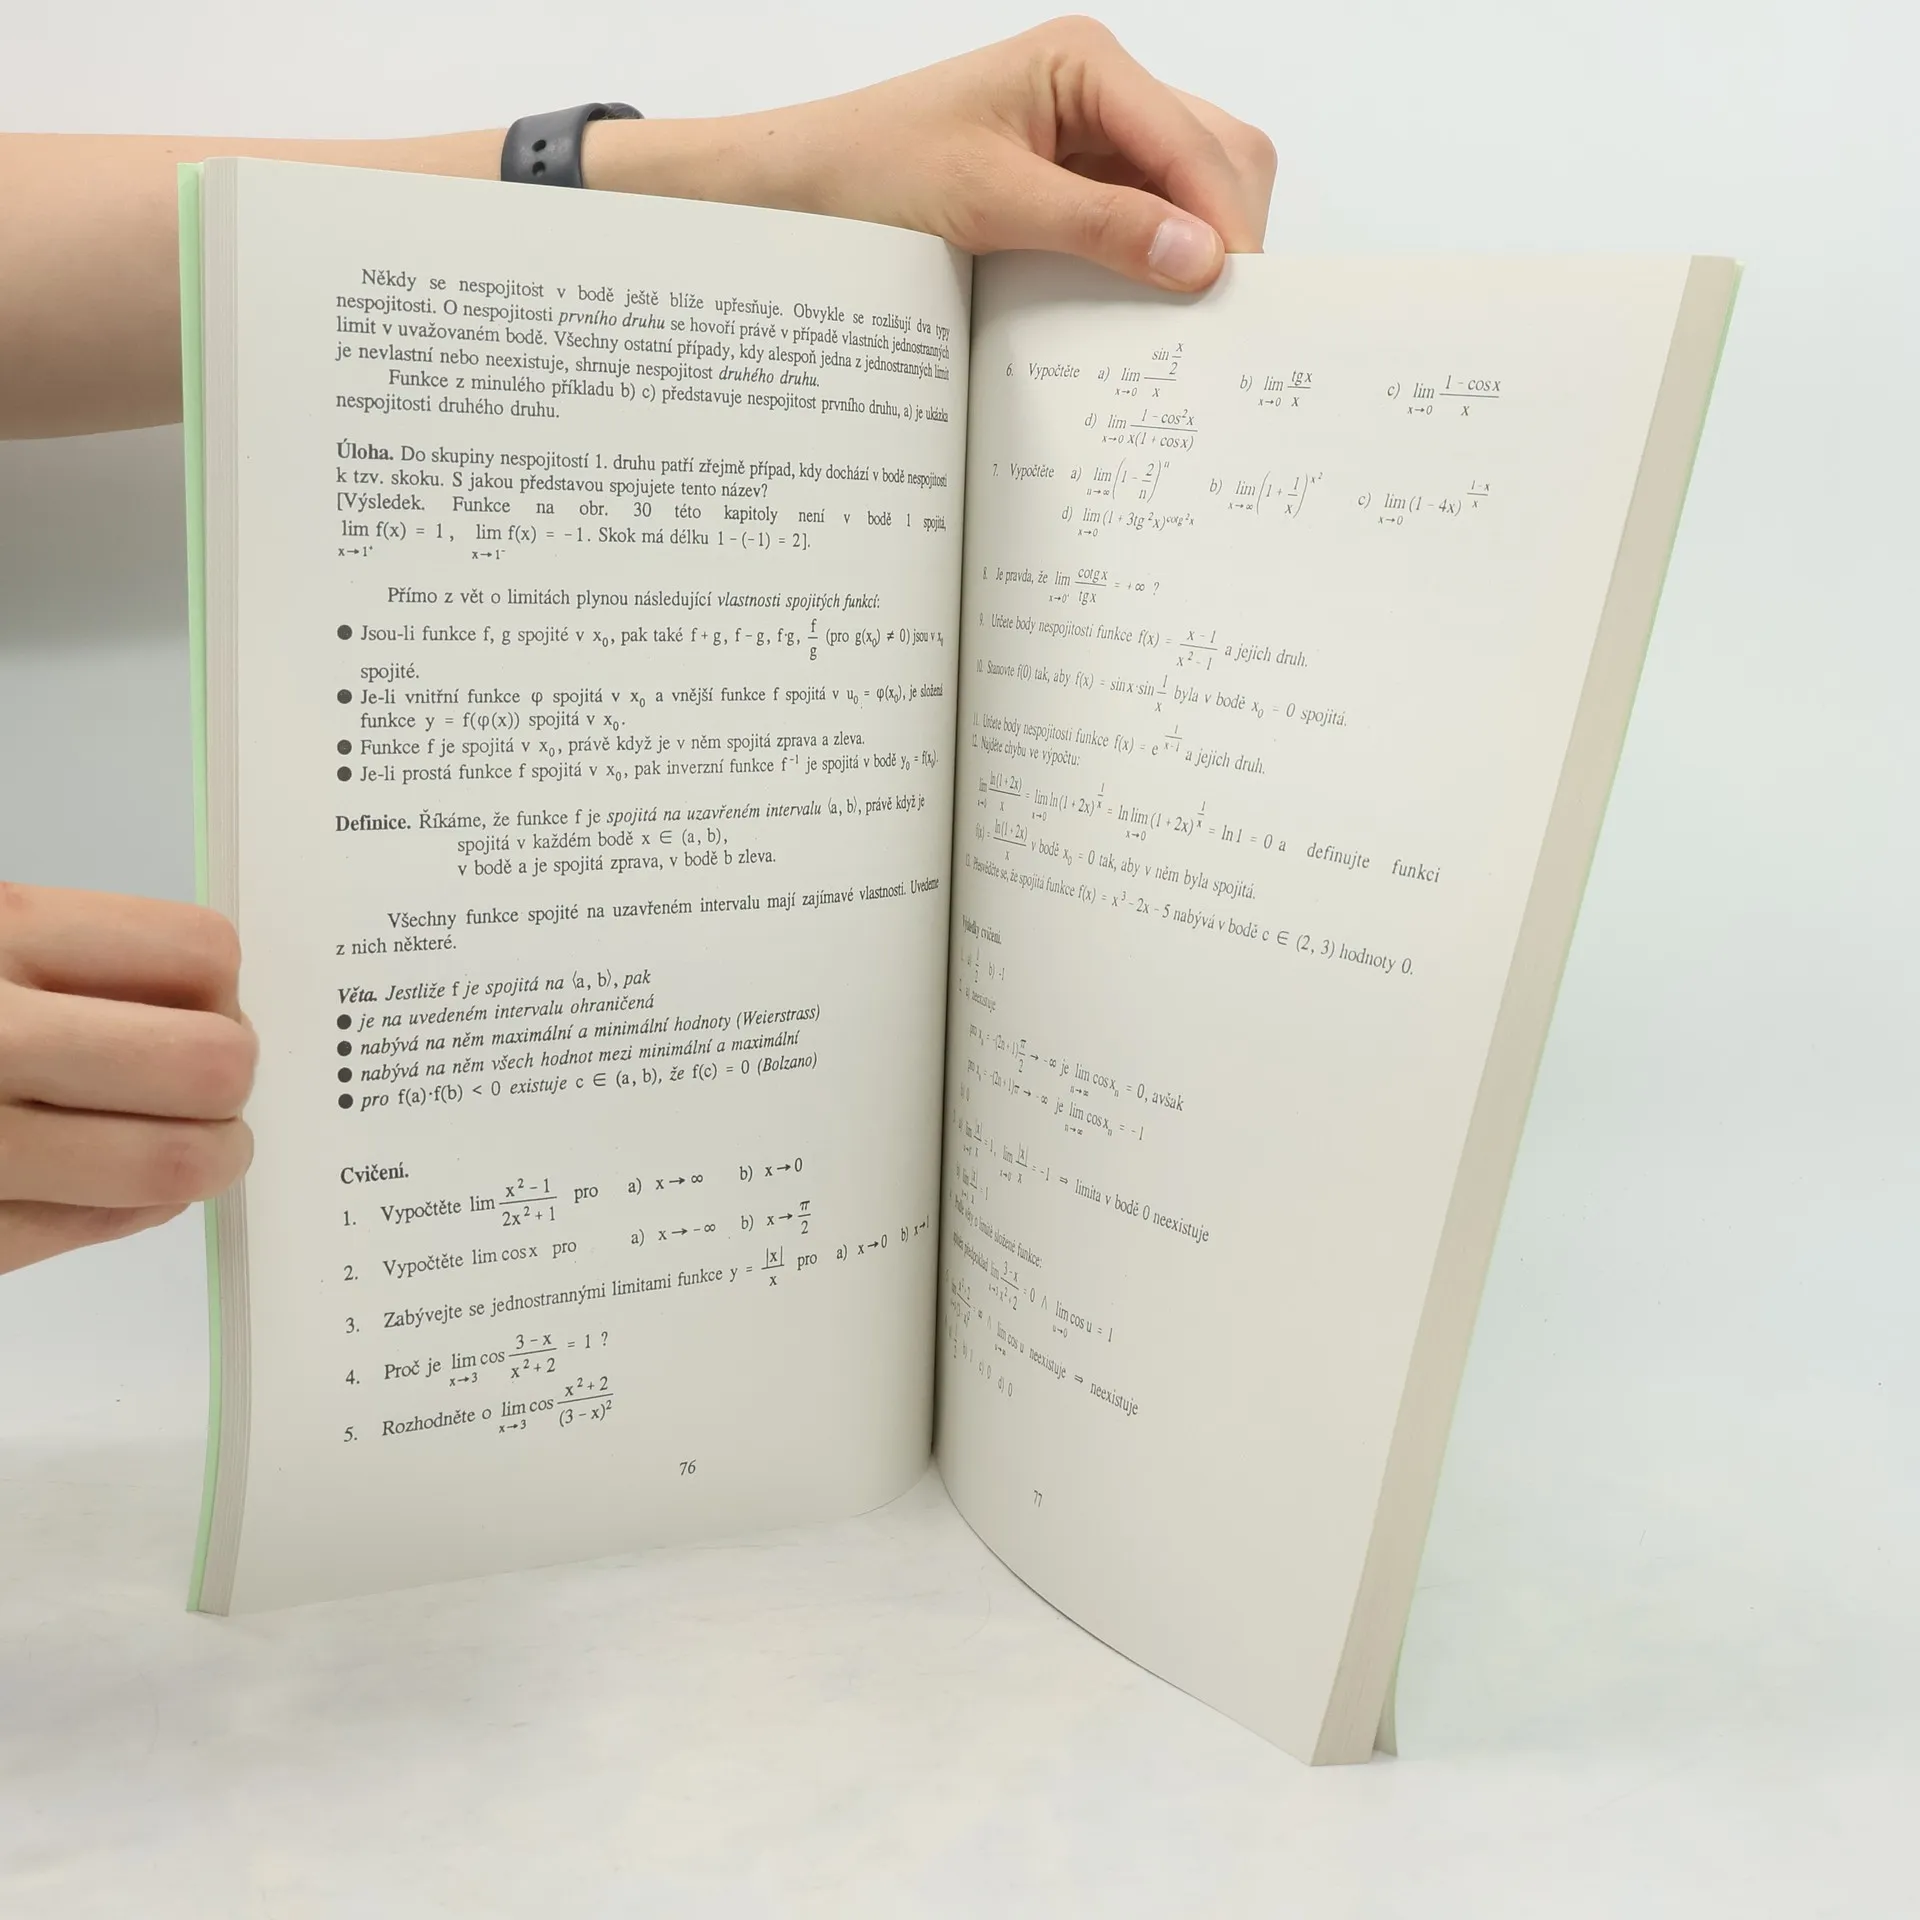 Někdy se nespojitost v bodě ještě blíže upřesňuje. Obvykle se rozlišují dva typy
nespojitosti. O nespojitosti prvního druhu se hovoří právě v případě vlastních jednostranných
limit v uvažovaném bodě. Všechny ostatní případy, kdy alespoň jedna z jednostranných limit
je nevlastní nebo neexistuje, shrnuje nespojitost druhého druhu.
Funkce z minulého příkladu b) c) představuje nespojitost prvního druhu, a) je ukázka
nespojitosti druhého druhu.
Úloha. Do skupiny nespojitostí 1. druhu patří zřejmě případ, kdy dochází v bodě nespojitosti
k tzv. skoku. S jakou představou spojujete tento název?
[Výsledek. Funkce na obr. 30 této kapitoly není v bodě 1 spojitá,
lim f(x) = 1, lim f(x) = -1. Skok má délku 1-(-1) = 2].
x→1⁺ x→1⁻
Přímo z vět o limitách plynou následující vlastnosti spojitých funkcí:
● Jsou-li funkce f, g spojité v x₀, pak také f+g, f-g, f·g, f/g (pro g(x₀) ≠ 0) jsou v x₀
spojité.
● Je-li vnitřní funkce φ spojitá v x₀ a vnější funkce f spojitá v u₀ = φ(x₀), je složená
funkce y = f(φ(x)) spojitá v x₀.
● Funkce f je spojitá v x₀, právě když je v něm spojitá zprava a zleva.
● Je-li prostá funkce f spojitá v x₀, pak inverzní funkce f⁻¹ je spojitá v bodě y₀ = f(x₀).
Definice. Říkáme, že funkce f je spojitá na uzavřeném intervalu ⟨a, b⟩, právě když je
spojitá v každém bodě x ∈ (a, b),
v bodě a je spojitá zprava, v bodě b zleva.
Všechny funkce spojité na uzavřeném intervalu mají zajímavé vlastnosti. Uvedeme
z nich některé.
Věta. Jestliže f je spojitá na ⟨a, b⟩, pak
● je na uvedeném intervalu ohraničená
● nabývá na něm maximální a minimální hodnoty (Weierstrass)
● nabývá na něm všech hodnot mezi minimální a maximální
● pro f(a)·f(b) < 0 existuje c ∈ (a, b), že f(c) = 0 (Bolzano)
Cvičení.
1. Vypočtěte lim (x²-1)/(2x²+1) pro a) x→∞ b) x→0
2. Vypočtěte lim cosx pro a) x→-∞ b) x→π/2
3. Zabývejte se jednostrannými limitami funkce y = |x|/x pro a) x→0 b) x→1
4. Proč je lim cos (3-x)/(x²+2) = 1 ?
x→3
5. Rozhodněte o lim cos (x²+2)/(3-x)²
x→3
76
6. Vypočtěte a) lim (sin x/2)/x b) lim tgx/x c) lim (1-cosx)/x
x→0 x→0 x→0
d) lim (1-cos²x)/(x(1+cosx))
x→0
7. Vypočtěte a) lim (1-2/n)ⁿ b) lim (1+1/x)^x² c) lim (1-4x)^((1-x)/x)
n→∞ x→∞ x→0
d) lim (1+3tg²x)^cotg²x
x→0
8. Je pravda, že lim cotgx/tgx = +∞ ?
x→0⁺
9. Určete body nespojitosti funkce f(x) = (x-1)/(x²-1) a jejich druh.
10. Stanovte f(0) tak, aby f(x) = sinx·sin 1/x byla v bodě x₀ = 0 spojitá.
11. Určete body nespojitosti funkce f(x) = e^(1/(x-1)) a jejich druh.
12. Najděte chybu ve výpočtu:
lim ln(1+2x)/x = lim ln(1+2x)^(1/x) = ln lim (1+2x)^(1/x) = ln1 = 0 a definujte funkci
x→0 x→0 x→0
f(x) = ln(1+2x)/x v bodě x₀ = 0 tak, aby v něm byla spojitá.
13. Přesvědčte se, že spojitá funkce f(x) = x³-2x-5 nabývá v bodě c ∈ (2, 3) hodnoty 0.
Výsledky cvičení.
1. a) 1/2 b) -1
2. a) neexistuje
pro xₙ = -(2n+1)π/2 → -∞ je lim cosxₙ = 0, avšak
n→∞
pro xₙ = -(2n+1)π → -∞ je lim cosxₙ = -1
n→∞
b) 0
3. a) lim |x|/x = 1, lim |x|/x = -1 ⇒ limita v bodě 0 neexistuje
b) lim |x|/x = 1
4. Podle věty o limitě složené funkce:
předpoklad lim (3-x)/(x²+2) = 0 ∧ lim cos u = 1
x→3 u→0
5. lim (x²+2)/(3-x)² = ∞ ∧ lim cos u neexistuje ⇒ neexistuje
6. a) 1/2 b) 1 c) 0 d) 0
77